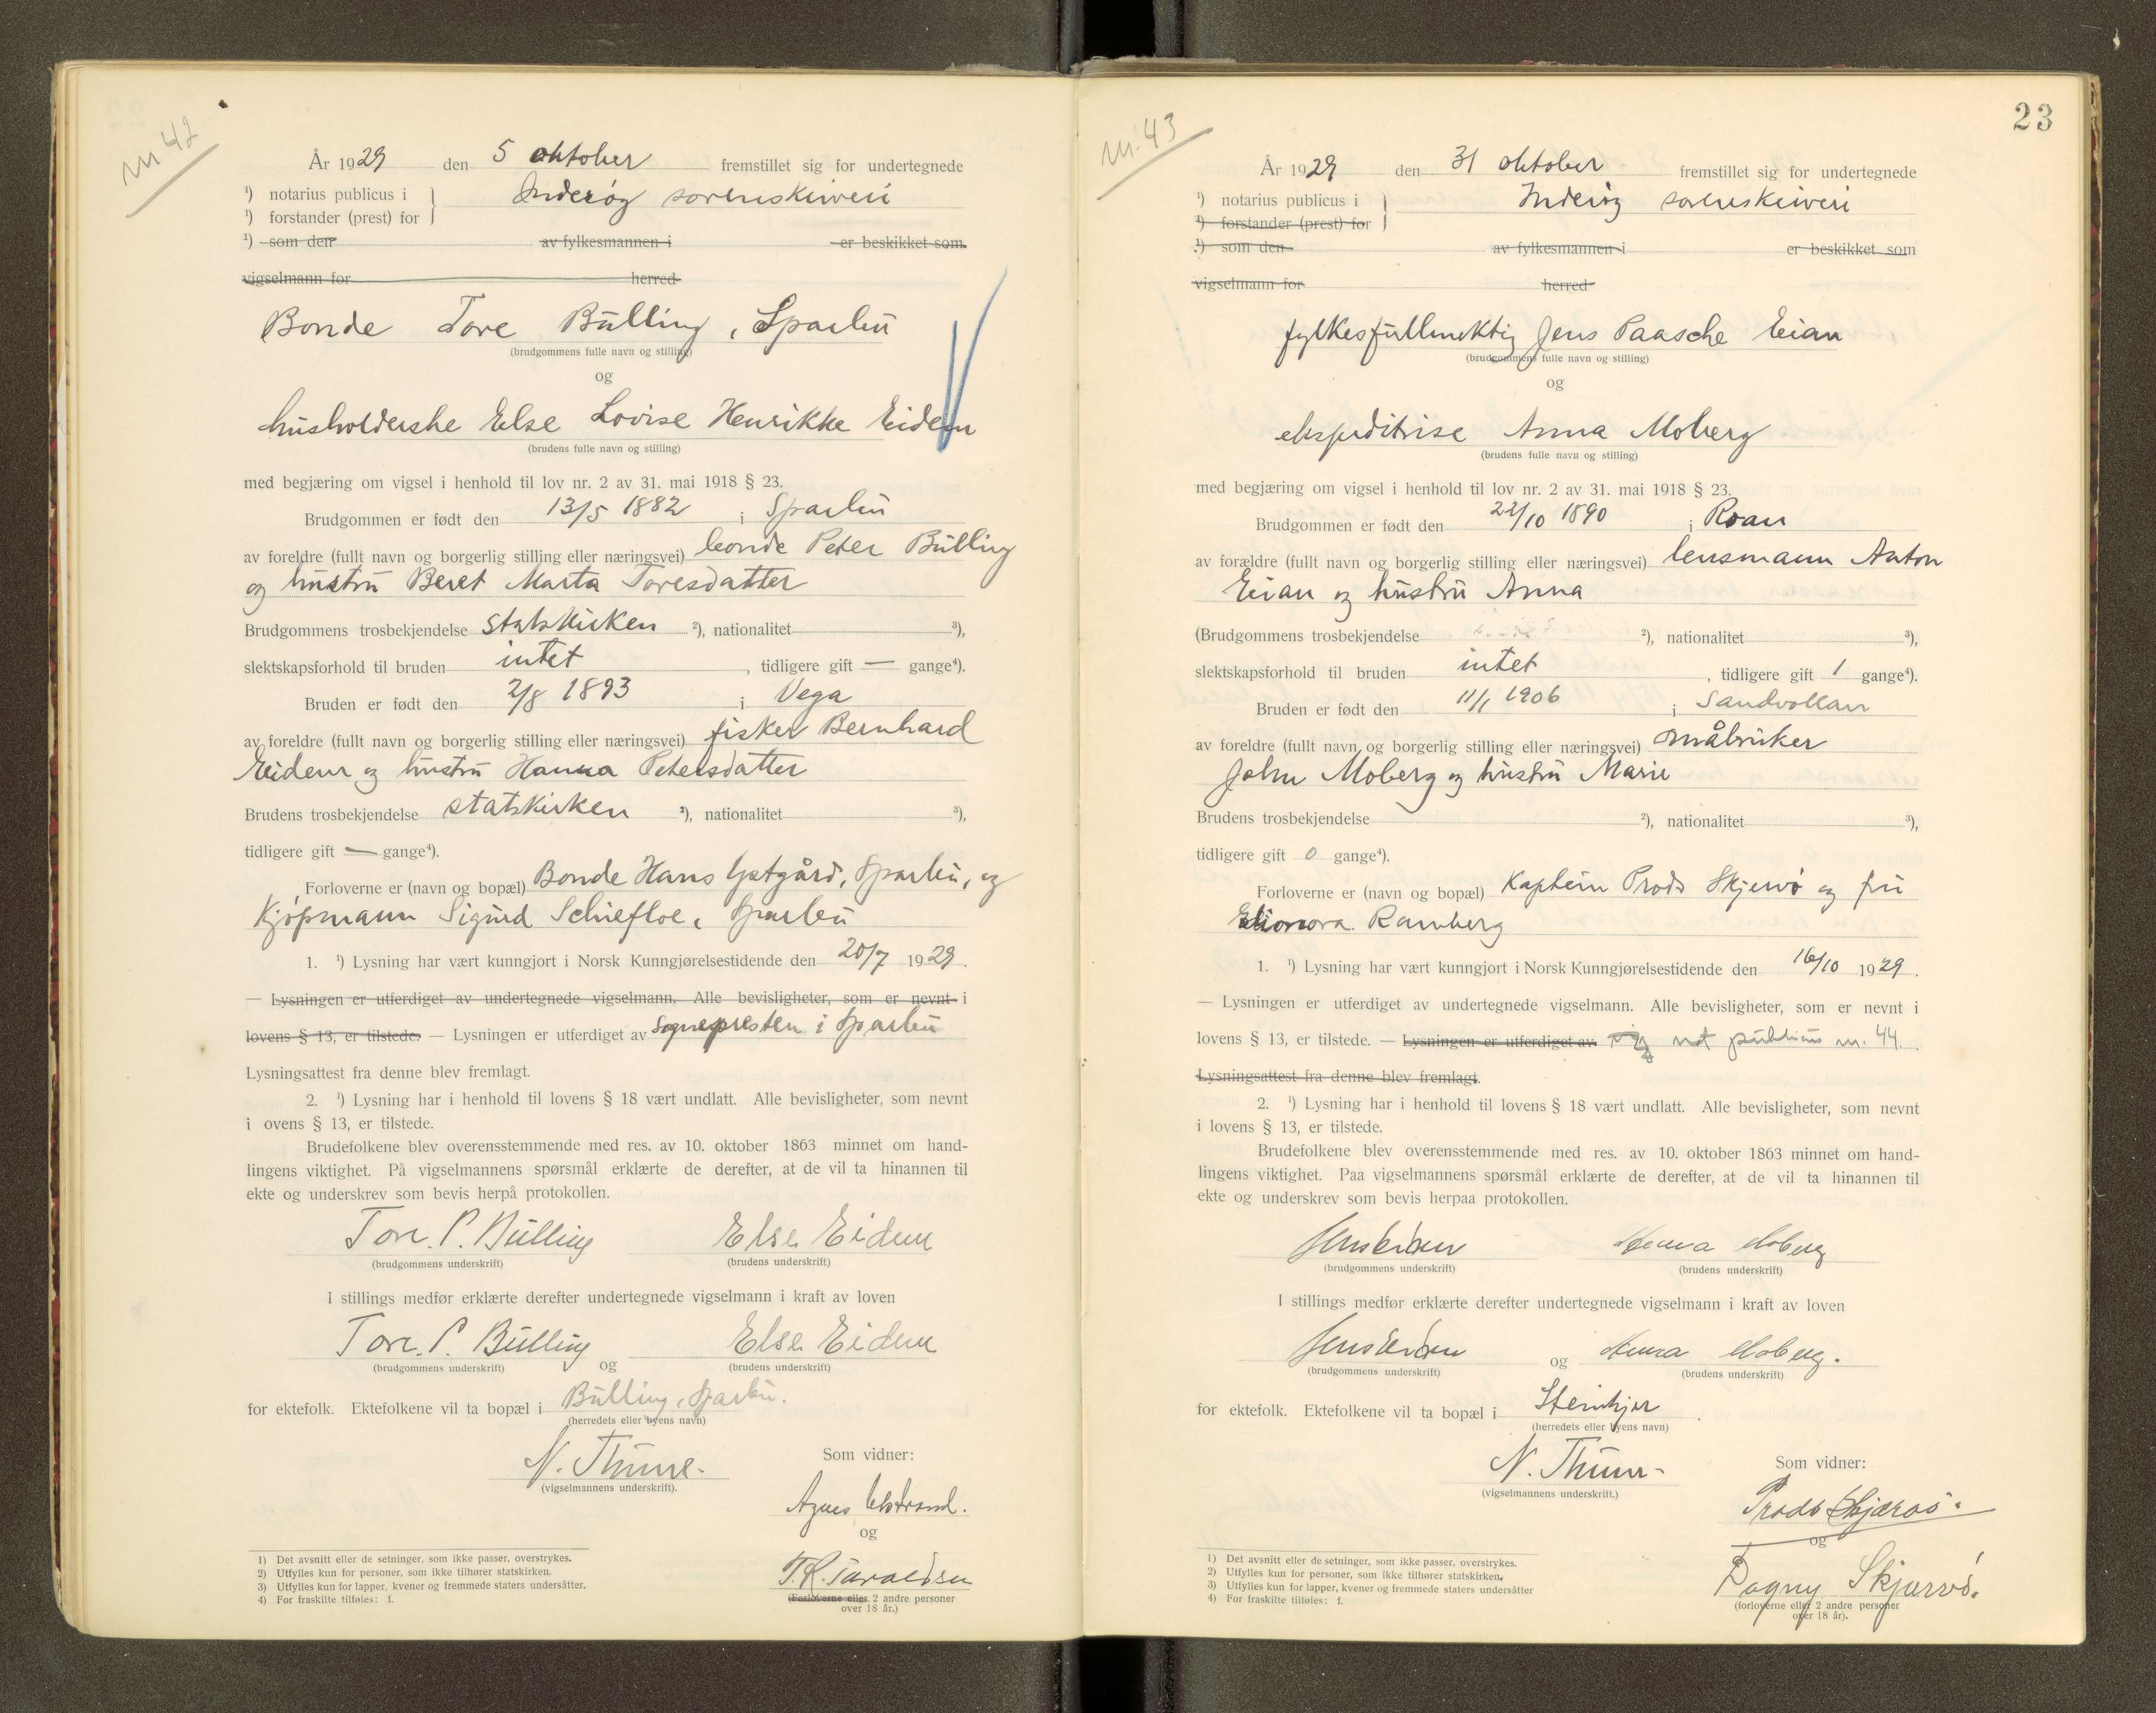 nr 42
År 1929 den 5 oktober fremstillet sig for undertegnede
¹) notarius publicus i
¹) forstander (prest) for
Inderøy sorenskriveri
¹) som den av fylkesmannen i er beskikket som
vigselmann for herred
Bonde Tore Bulling, Sparbu
(brudgommens fulle navn og stilling)
og
husholderske Else Lovise Henrikke Eidem
(brudens fulle navn og stilling)
med begjæring om vigsel i henhold til lov nr. 2 av 31. mai 1918 § 23.
Brudgommen er født den 13/5 1882 i Sparbu
av foreldre (fullt navn og borgerlig stilling eller næringsvei) bonde Peter Bulling
og hustru Beret Marta Toresdatter
Brudgommens trosbekjendelse statskirken ²), nationalitet ³),
slektskapsforhold til bruden intet, tidligere gift — gange⁴).
Bruden er født den 2/8 1893 i Vega
av foreldre (fullt navn og borgerlig stilling eller næringsvei) fisker Bernhard
Eidem og hustru Hanna Petersdatter
Brudens trosbekjendelse statskirken ²), nationalitet ³),
tidligere gift — gange⁴).
Forloverne er (navn og bopæl) Bonde Hans Ystgård, Sparbu, og
Kjøpmann Sigurd Schiefloe, Sparbu
1. ¹) Lysning har vært kunngjort i Norsk Kunngjørelsestidende den 20/7 1929.
— Lysningen er utferdiget av undertegnede vigselmann. Alle bevisligheter, som er nevnt i
lovens § 13, er tilstede. — Lysningen er utferdiget av sognepresten i Sparbu
Lysningsattest fra denne blev fremlagt.
2. ¹) Lysning har i henhold til lovens § 18 vært undlatt. Alle bevisligheter, som nevnt
i ovens § 13, er tilstede.
Brudefolkene blev overensstemmende med res. av 10. oktober 1863 minnet om hand-
lingens viktighet. På vigselmannens spørsmål erklærte de derefter, at de vil ta hinannen til
ekte og underskrev som bevis herpå protokollen.
Tore P. Bulling Else Eidem
(brudgommens underskrift) (brudens underskrift)
I stillings medfør erklærte derefter undertegnede vigselmann i kraft av loven
Tore P. Bulling og Else Eidem
(brudgommens underskrift) (brudens underskrift)
for ektefolk. Ektefolkene vil ta bopæl i Bulling, Sparbu.
(herredets eller byens navn)
N. Thune
(vigselmannens underskrift).
Som vidner:
Agnes
og
T. R. Taraldsen
(Forloverne eller 2 andre personer
over 18 år.)
1) Det avsnitt eller de setninger, som ikke passer, overstrykes.
2) Utfylles kun for personer, som ikke tilhører statskirken.
3) Utfylles kun for lapper, kvener og fremmede staters undersåtter.
4) For fraskilte tilføies: f.
23
nr. 43
År 1929 den 31 oktober fremstillet sig for undertegnede
¹) notarius publicus i
¹) forstander (prest) for
Inderøy sorenskriveri
¹) som den av fylkesmannen i er beskikket som
vigselmann for herred
fylkesfullmektig Jens Paasche Eian
(brudgommens fulle navn og stilling)
og
ekspeditrise Anna Moberg
(brudens fulle navn og stilling)
med begjæring om vigsel i henhold til lov nr. 2 av 31. mai 1918 § 23.
Brudgommen er født den 22/10 1890 i Roan
av forældre (fullt navn og borgerlig stilling eller næringsvei) lensmann Anton
Eian og hustru Anna
(Brudgommens trosbekjendelse ²), nationalitet ³),
slektskapsforhold til bruden intet, tidligere gift 1 gange⁴).
Bruden er født den 11/1 1906 i Sandvollan
av foreldre (fullt navn og borgerlig stilling eller næringsvei) småbruker
John Moberg og hustru Marie
Brudens trosbekjendelse ²), nationalitet ³),
tidligere gift 0 gange⁴).
Forloverne er (navn og bopæl) Kaptein Prods Skjervø og fru
Elionora Ramberg
1. ¹) Lysning har vært kunngjort i Norsk Kunngjørelsestidende den 16/10 1929.
— Lysningen er utferdiget av undertegnede vigselmann. Alle bevisligheter, som er nevnt i
lovens § 13, er tilstede. — Lysningen er utferdiget av not publicus nr. 44.
Lysningsattest fra denne blev fremlagt.
2. ¹) Lysning har i henhold til lovens § 18 vært undlatt. Alle bevisligheter, som nevnt
i lovens § 13, er tilstede.
Brudefolkene blev overensstemmende med res. av 10. oktober 1863 minnet om hand-
lingens viktighet. Paa vigselmannens spørsmål erklærte de derefter, at de vil ta hinannen til
ekte og underskrev som bevis herpaa protokollen.
Jens Eian Anna Moberg
(brudgommens underskrift) (brudens underskrift)
I stillings medfør erklærte derefter undertegnede vigselmann i kraft av loven
Jens Eian og Anna Moberg.
(brudgommens underskrift) (brudens underskrift)
for ektefolk. Ektefolkene vil ta bopæl i Steinkjer.
(herredets eller byens navn)
N. Thune
(vigselmannens underskrift.)
Som vidner:
Prods Skjærvø.
og
Dagny Skjærvø.
(forloverne eller 2 andre personer
over 18 år).
1) Det avsnitt eller de setninger, som ikke passer, overstrykes.
2) Utfylles kun for personer, som ikke tilhører statskirken.
3) Utfylles kun for lapper, kvener og fremmede staters undersåtter
4) For fraskilte tilføies: f.